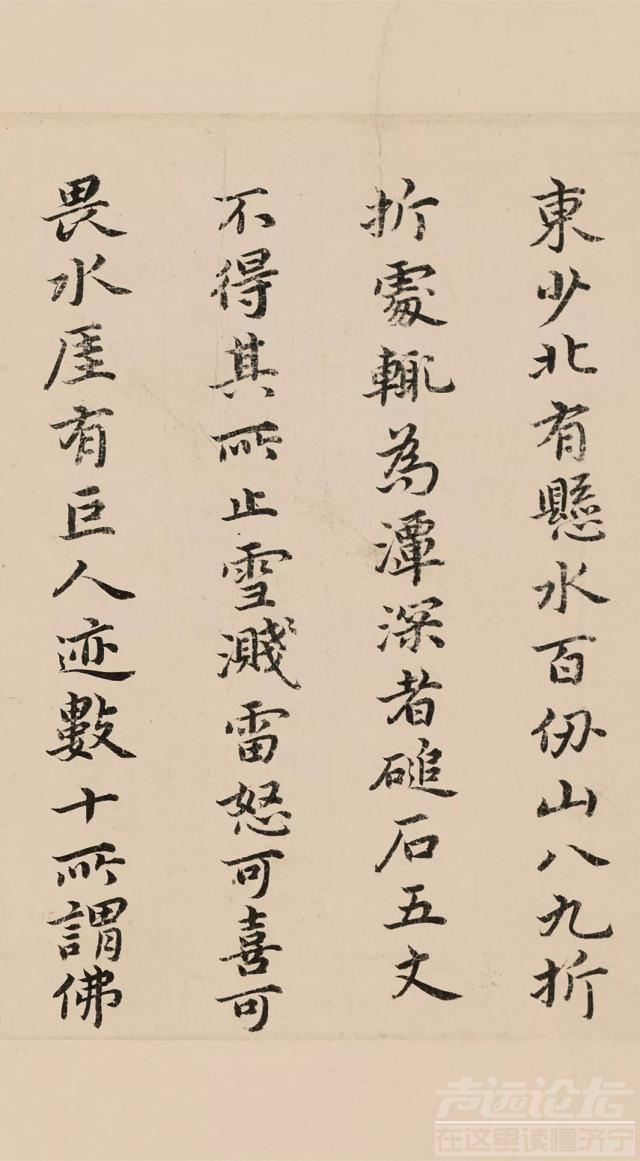 東少北有懸水百仞山八九折
折處輒為潭深者磓石五丈
不得其所止雪濺雷怒可喜可
畏水厓有巨人迹數十所謂佛
声远论坛
在这里读懂济宁